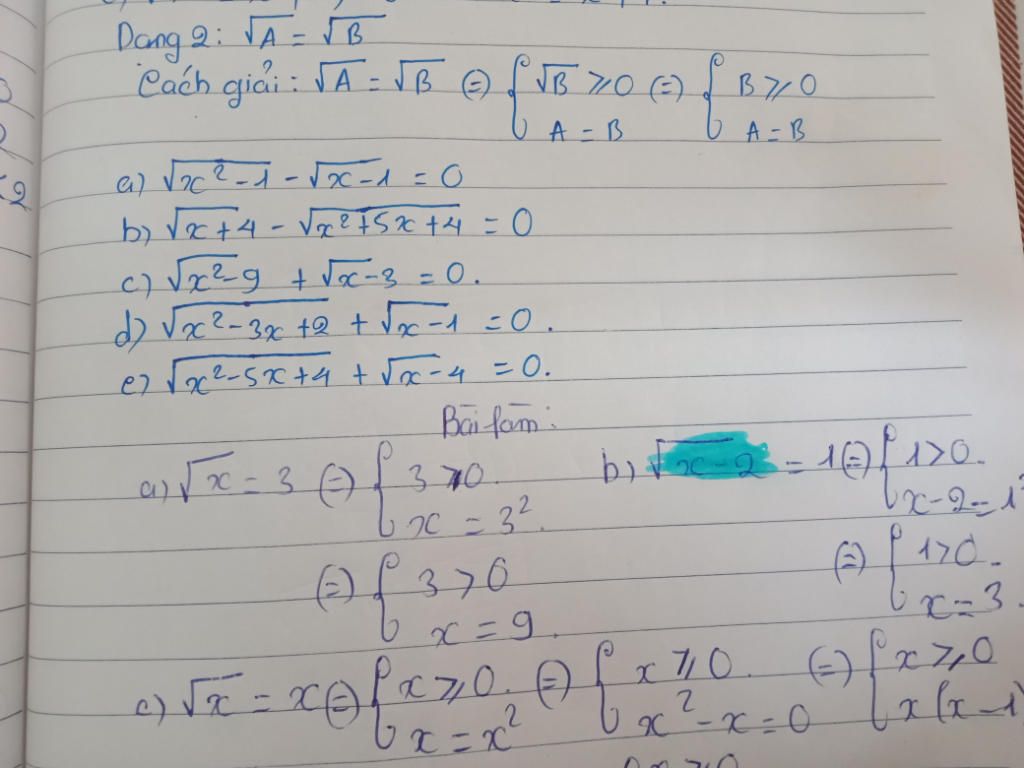 Dạng 2: √A = √B
Cách giải: √A = √B (=) { √B ⩾ 0 (=) { B ⩾ 0
A = B A = B
a) √x² - 1 - √x - 1 = 0
b) √x + 4 - √x² + 5x + 4 = 0
c) √x² - 9 + √x - 3 = 0.
d) √x² - 3x + 2 + √x - 1 = 0.
e) √x² - 5x + 4 + √x - 4 = 0.
Bài làm:
a) √x = 3 (=) { 3 ⩾ 0 b) √x - 2 = 1 (=) { 1 > 0.
x = 3². x - 2 = 1²
(=) { 3 > 0 (=) { 1 > 0.
x = 9. x = 3.
c) √x = x (=) { x ⩾ 0. (=) { x ⩾ 0. (=) { x ⩾ 0
x = x² x² - x = 0 x (x - 1)